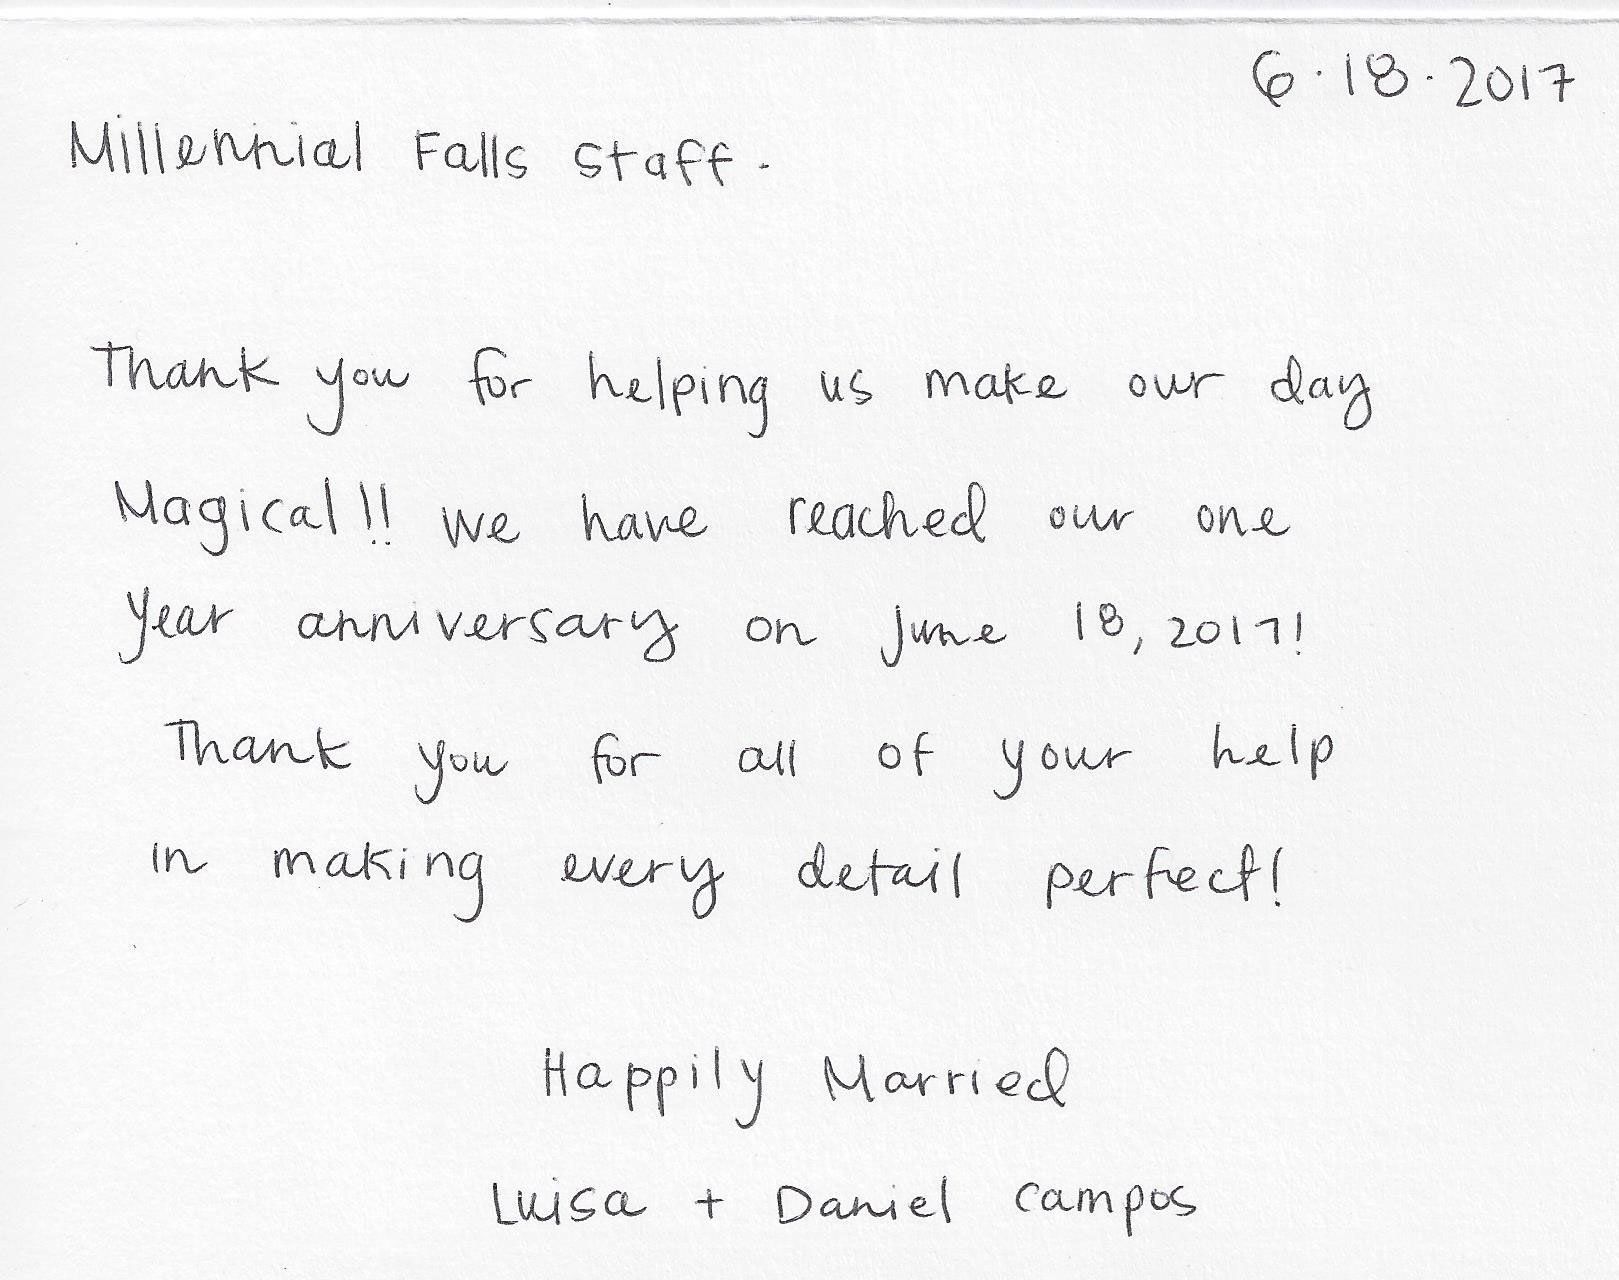 6.18.2017
Millennial Falls staff.
Thank you for helping us make our day
Magical!! We have reached our one
year anniversary on June 18, 2017!
Thank you for all of your help
in making every detail perfect!
Happily Married
Luisa + Daniel Campos